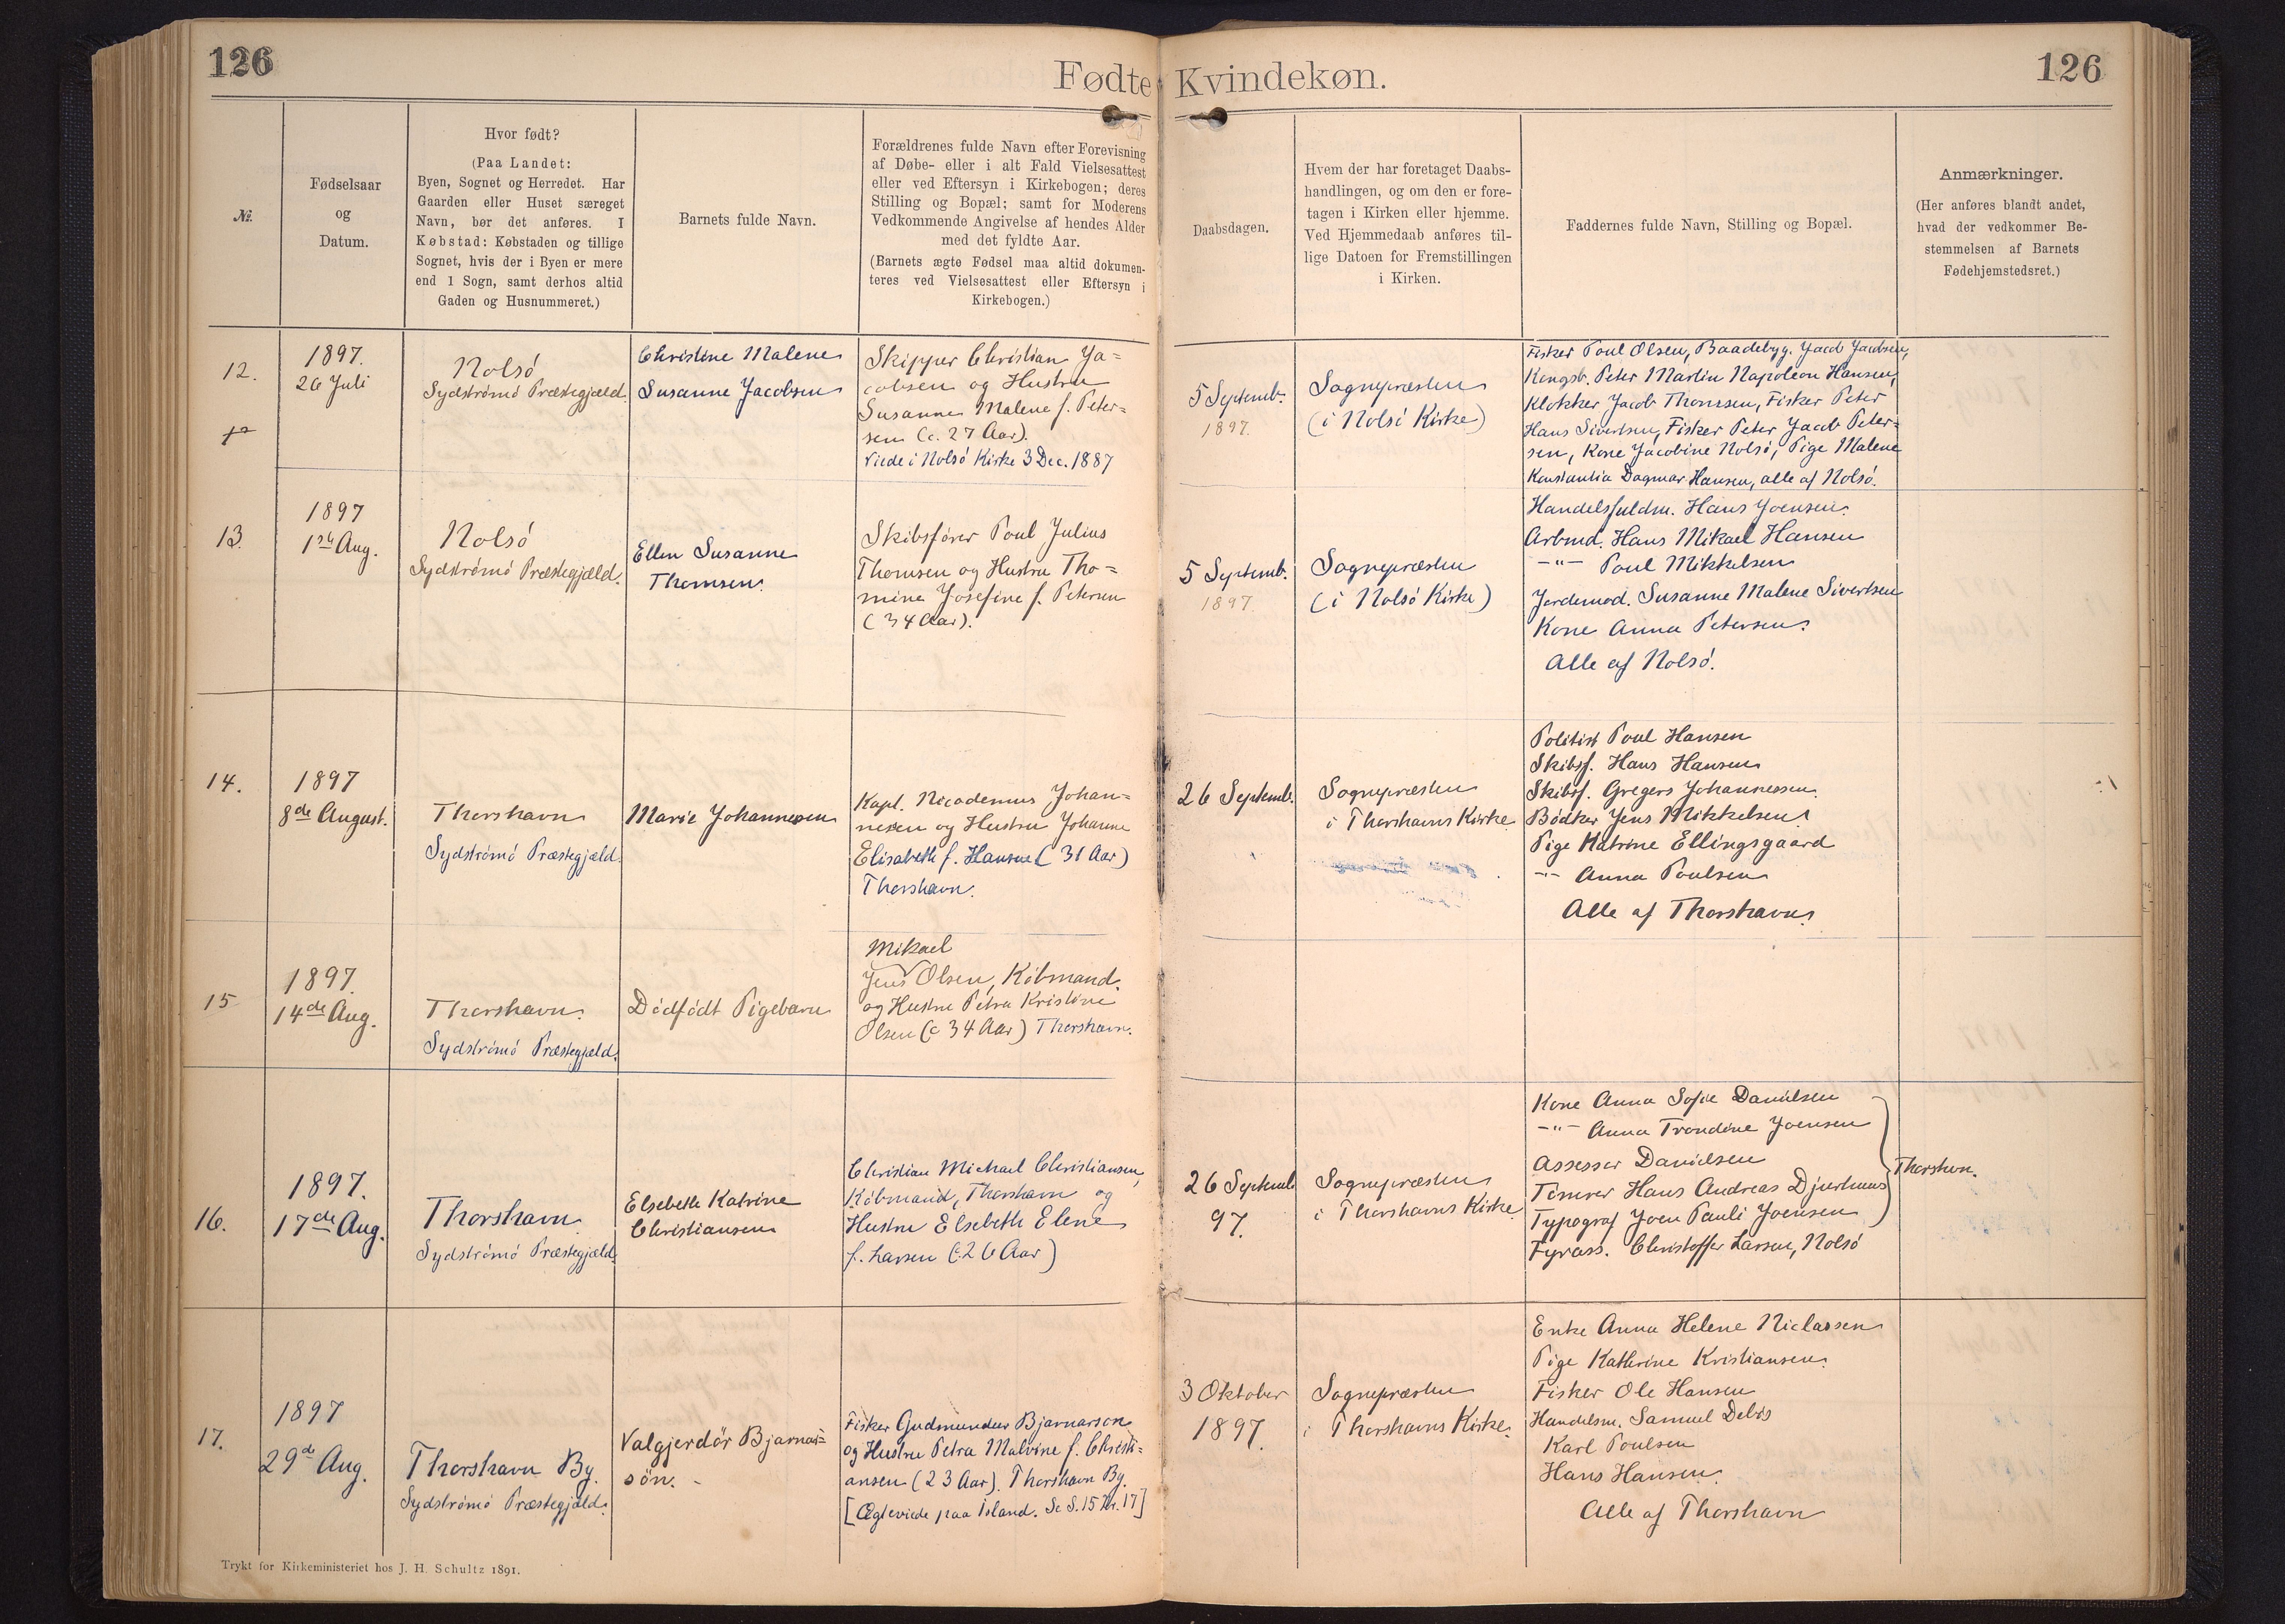 126
Fødte
Kvindekøn.
126
№.
Fødselsaar
og
Datum.
Hvor født?
(Paa Landet:
Byen, Sognet og Herredet. Har
Gaarden eller Huset særeget
Navn, bør det anføres. I
Købstad: Købstaden og tillige
Sognet, hvis der i Byen er mere
end 1 Sogn, samt derhos altid
Gaden og Husnummeret.)
Barnets fulde Navn.
Forældrenes fulde Navn efter Forevisning
af Døbe- eller i alt Fald Vielsesattest
eller ved Eftersyn i Kirkebogen; deres
Stilling og Bopæl; samt for Moderens
Vedkommende Angivelse af hendes Alder
med det fyldte Aar.
(Barnets ægte Fødsel maa altid dokumen-
teres ved Vielsesattest eller Eftersyn i
Kirkebogen.)
Daabsdagen.
Hvem der har foretaget Daabs-
handlingen, og om den er fore-
tagen i Kirken eller hjemme.
Ved Hjemmedaab anføres til-
lige Datoen for Fremstillingen
i Kirken.
Faddernes fulde Navn, Stilling og Bopæl.
Anmærkninger.
(Her anføres blandt andet,
hvad der vedkommer Be-
stemmelsen af Barnets
Fødehjemstedsret.)
12.
1897.
26 Juli
Nolsö
Sydströmö Præstegjæld.
Christine Malene
Susanne Jacobsen
Skipper Christian Ja=
cobsen og Hustru
Susanne Malene f. Peter=
sen (c. 27 Aar).
Viede i Nolsö Kirke 3 Dec. 1887
5 Septemb.
1897.
Sognepræsten
(i Nolsö Kirke)
Fisker Poul Olsen, Baadebyg. Jacob Jacobsen,
Kongsb. Peter Martin Napoleon Hansen,
Klokker Jacob Thomsen, Fisker Peter
Hans Sivertsen, Fisker Peter Jacob Peter=
sen, Kone Jacobine Nolsö, Pige Malene
Konstantia Dagmar Hansen, alle af Nolsö.
13.
1897
1ste Aug.
Nolsö
Sydströmö Præstegjæld.
Ellen Susanne
Thomsen.
Skibsförer Poul Julius
Thomsen og Hustru Tho=
mine Josefine f. Petersen
(34 Aar).
5 Septemb.
1897.
Sognepræsten
(i Nolsö Kirke)
Handelsfuldm. Hans Joensen.
Arbmd. Hans Mikael Hansen
-"- Poul Mikkelsen
Jordemod. Susanne Malene Sivertsen
Kone Anna Petersen.
Alle af Nolsö.
14.
1897
8de August.
Thorshavn
Sydströmö Præstegjæld.
Marie Johannesen
Kapt. Nicodemus Johan=
nesen og Hustru Johanne
Elisabeth f. Hansen (31 Aar)
Thorshavn.
26 Septemb.
Sognepræsten
i Thorshavns Kirke
Politist Poul Hansen
Skibsf. Hans Hansen
Skibsf. Gregers Johannessen.
Bödker Jens Mikkelsen
Pige Katrine Ellingsgaard
-"- Anna Poulsen
Alle af Thorshavn
15
1897.
14de Aug.
Thorshavn.
Sydströmö Præstegjæld.
Dödfödt Pigebarn
Mikael
Jens Olsen, Köbmand.
og Hustru Petra Kristine
Olsen (c 34 Aar) Thorshavn.
16.
1897.
17de Aug.
Thorshavn
Sydströmö Præstegjæld.
Elsebeth Katrine
Christiansen
Christian Michael Christiansen,
Köbmand, Thorshavn og
Hustru Elsebeth Elene
f. Larsen (c. 26 Aar)
26 Septemb
97.
Sognepræsten
i Thorshavns Kirke
Kone Anna Sofie Danielsen
-"- Anna Trondine Joensen
Assessor Danielsen
Tömrer Hans Andreas Djurhuus
Typograf Joen Pauli Joensen
Thorshvn.
Fyrass. Christoffer Larsen, Nolsö
17.
1897
29de Aug.
Thorshavn By.
Sydströmö Præstegjæld.
Valgjerdör Bjarnar=
sön. -
Fisker Gudmundur Bjarnarson
og Hustru Petra Malvine f. Christi=
ansen (23 Aar). Thorshavn By.
[Ægteviede paa Island. Se S. 15 Nr. 17]
3 Oktober
1897.
Sognepræsten
i Thorshavns Kirke.
Enke Anna Helene Niclassen
Pige Kathrine Kristiansen.
Fisker Ole Hansen
Handelsm. Samuel Debis
Karl Poulsen
Hans Hansen.
Alle af Thorshavn
Trykt for Kirkeministeriet hos J. H. Schultz 1891.